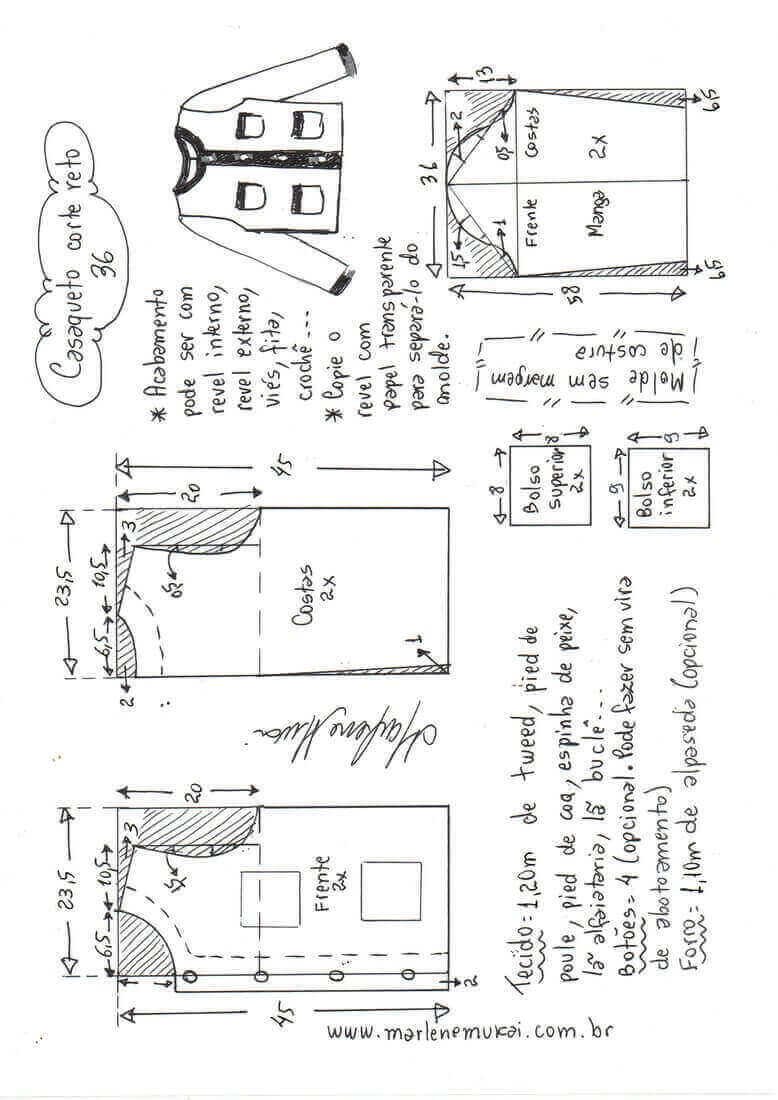 Casaqueto corte reto
36
* Acabamento
pode ser com
revel interno,
revel externo,
viés, fita,
crochê...
* Copie o
revel com
papel transparente
para separá-lo do
molde.
36
13
2
0,5
1,5
1
Frente
Costas
Manga
2x
58
5,9
5,9
Molde sem margem
de costura
23,5
6,5
10,5
3
2
20
45
0,5
Costas
2x
1
8
8
Bolso
superior
2x
9
9
Bolso
inferior
2x
23,5
6,5
10,5
3
20
45
1,5
Frente
2x
2
Tecido= 1,20m de tweed, pied de
poule, pied de coq, espinha de peixe,
lã alfaiataria, lã buclê...
Botões= 4 (opcional. Pode fazer sem vira
de abotoamento)
Forro= 1,10m de alpaseda (opcional)
www.marlenemukai.com.br